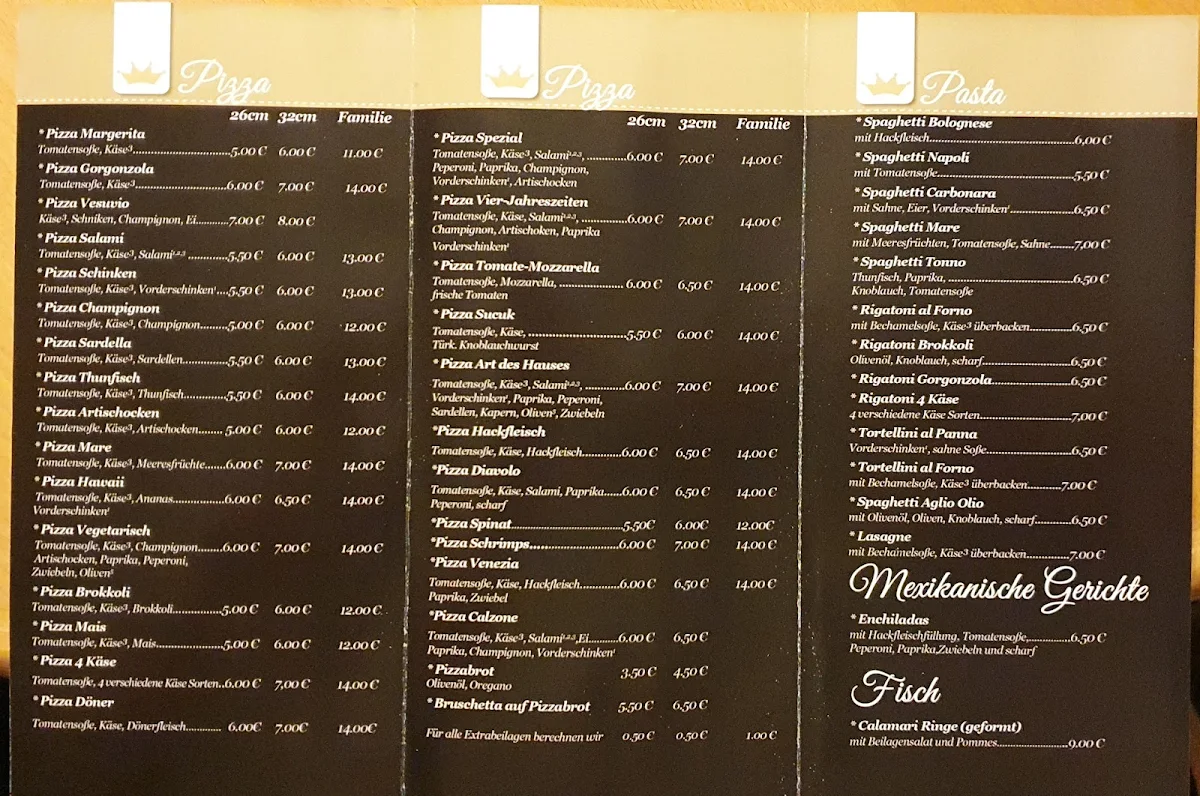 Pizza
26cm 32cm Familie
* Pizza Margerita
Tomatensoße, Käse³..............................5.00 € 6.00 € 11.00 €
* Pizza Gorgonzola
Tomatensoße, Käse³.............................6.00 € 7.00 € 14.00 €
* Pizza Vesuvio
Käse³, Schniken, Champignon, Ei..........7.00 € 8.00 €
* Pizza Salami
Tomatensoße, Käse³, Salami¹,²,³ .............5,50 € 6.00 € 13.00 €
* Pizza Schinken
Tomatensoße, Käse³, Vorderschinken¹....5,50 € 6.00 € 13.00 €
* Pizza Champignon
Tomatensoße, Käse³, Champignon.........5.00 € 6.00 € 12.00 €
* Pizza Sardella
Tomatensoße, Käse³, Sardellen..............5,50 € 6.00 € 13.00 €
* Pizza Thunfisch
Tomatensoße, Käse³, Thunfisch..............5,50 € 6.00 € 14.00 €
* Pizza Artischocken
Tomatensoße, Käse³, Artischocken........ 5.00 € 6.00 € 12.00 €
* Pizza Mare
Tomatensoße, Käse³, Meeresfrüchte......6.00 € 7.00 € 14.00 €
* Pizza Hawaii
Tomatensoße, Käse³, Ananas.................6.00 € 6,50 € 14.00 €
Vorderschinken¹
* Pizza Vegetarisch
Tomatensoße, Käse³, Champignon........6.00 € 7.00 € 14.00 €
Artischocken, Paprika, Peperoni,
Zwiebeln, Oliven⁵
* Pizza Brokkoli
Tomatensoße, Käse³, Brokkoli................5.00 € 6.00 € 12.00 €
* Pizza Mais
Tomatensoße, Käse³, Mais......................5.00 € 6.00 € 12.00 €
* Pizza 4 Käse
Tomatensoße, 4 verschiedene Käse Sorten..6.00 € 7,00 € 14.00 €
* Pizza Döner
Tomatensoße, Käse, Dönerfleisch............ 6.00€ 7.00€ 14.00€
Pizza
26cm 32cm Familie
* Pizza Spezial
Tomatensoße, Käse³, Salami¹,²,³, ............6.00 € 7.00 € 14.00 €
Peperoni, Paprika, Champignon,
Vorderschinken¹, Artischocken
* Pizza Vier-Jahreszeiten
Tomatensoße, Käse, Salami¹,²,³, .............6.00 € 7.00 € 14.00 €
Champignon, Artischoken, Paprika
Vorderschinken¹
* Pizza Tomate-Mozzarella
Tomatensoße, Mozzarella, .................... 6.00 € 6,50 € 14.00 €
frische Tomaten
* Pizza Sucuk
Tomatensoße, Käse, ..............................5.50 € 6.00 € 14.00 €
Türk. Knoblauchwurst
* Pizza Art des Hauses
Tomatensoße, Käse³, Salami¹,²,³, ............6.00 € 7.00 € 14.00 €
Vorderschinken¹, Paprika, Peperoni,
Sardellen, Kapern, Oliven⁵, Zwiebeln
*Pizza Hackfleisch
Tomatensoße, Käse, Hackfleisch............6.00 € 6,50 € 14.00 €
*Pizza Diavolo
Tomatensoße, Käse, Salami, Paprika......6.00 € 6,50 € 14.00 €
Peperoni, scharf
*Pizza Spinat....................................5.50€ 6.00€ 12.00€
*Pizza Schrimps.............................6.00 € 7.00 € 14.00 €
*Pizza Venezia
Tomatensoße, Käse, Hackfleisch............6.00 € 6,50 € 14.00 €
Paprika, Zwiebel
*Pizza Calzone
Tomatensoße, Käse³, Salami¹,²,³,Ei........6.00 € 6,50 €
Paprika, Champignon, Vorderschinken¹
* Pizzabrot 3.50 € 4.50 €
Olivenöl, Oregano
* Bruschetta auf Pizzabrot 5.50 € 6,50 €
Für alle Extrabeilagen berechnen wir 0.50 € 0.50 € 1.00 €
Pasta
* Spaghetti Bolognese
mit Hackfleisch........................................6,00 €
* Spaghetti Napoli
mit Tomatensoße......................................5,50 €
* Spaghetti Carbonara
mit Sahne, Eier, Vorderschinken¹.................6.50 €
* Spaghetti Mare
mit Meeresfrüchten, Tomatensoße, Sahne.......7,00 €
* Spaghetti Tonno
Thunfisch, Paprika, ...................................6,50 €
Knoblauch, Tomatensoße
* Rigatoni al Forno
mit Bechamelsoße, Käse³ überbacken............6.50 €
* Rigatoni Brokkoli
Olivenöl, Knoblauch, scharf........................6,50 €
* Rigatoni Gorgonzola......................6,50 €
* Rigatoni 4 Käse
4 verschiedene Käse Sorten.........................7,00 €
* Tortellini al Panna
Vorderschinken¹, sahne Soße.......................6,50 €
* Tortellini al Forno
mit Bechamelsoße, Käse³ überbacken..........7.00 €
* Spaghetti Aglio Olio
mit Olivenöl, Oliven, Knoblauch, scharf..........6,50 €
* Lasagne
mit Bechamelsoße, Käse³ überbacken............7.00 €
Mexikanische Gerichte
* Enchiladas
mit Hackfleischfüllung, Tomatensoße,............6.50 €
Peperoni, Paprika,Zwiebeln und scharf
Fisch
* Calamari Ringe (geformt)
mit Beilagensalat und Pommes.....................9.00 €